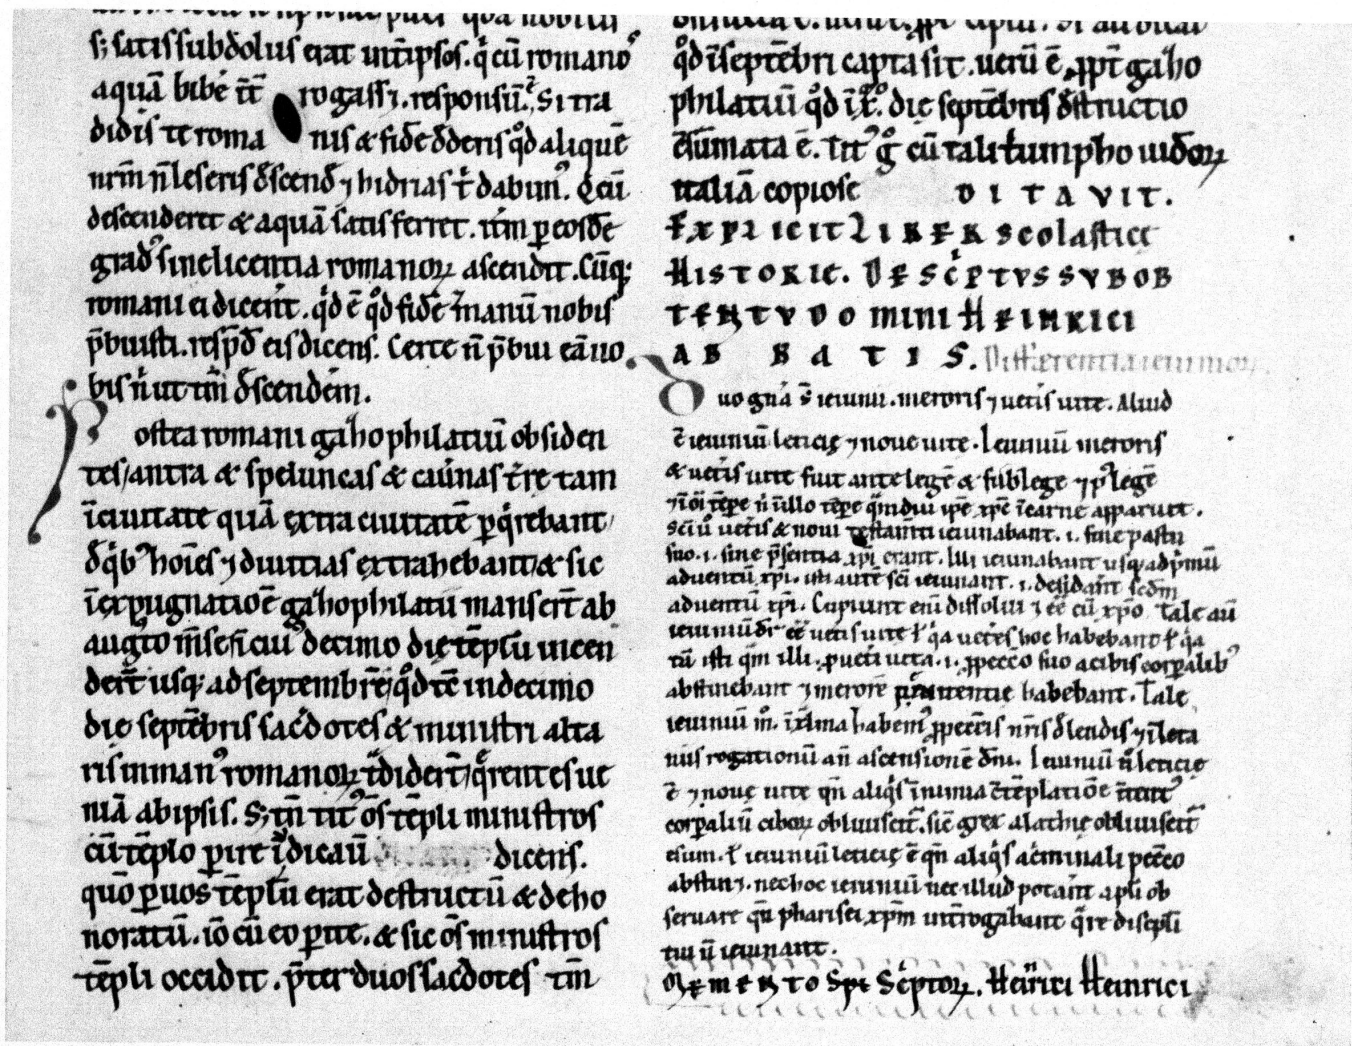 s; satis subdolus erat int̄ ip̄sos. q̇ cū romano⁹
aquā bibe᷒ t̄t̄ rogass̄ı. responsū ē. Si tra
didis̄ te romanis & fidē dederis qͦd aliquē
nr̄m n̄ leseris descend̄ ⁊ hidrias t̄ dabim⁹. Q̇ cū
descenderet & aquā satis ferret. it̄m p eosdē
grad⁹ sine licentia romanoꝝ ascendit. Cūq;
romani ei dicer̄t. q̇d ē qͦd fidē ī manū nobis
p̄buisti. resp̄d eis dicens. Certe n̄ p̄bui eā uo
bis n̄ ut tm̄ descenderē.
Postea romani gaƀophilatiū obsiden
tes/ antra & speluncas & cauernas t̄rę tam
ī ciuitate quā extra ciuitatē pq̇rebant/
d̄ q̇b⁹ hoīes ⁊ diuitias extrahebant/ & sic
ī expugnatiōe gaƀophilatii manser̄t ab
aug⁹to m̄se
decimo die tēplū incen
der̄t usq; ad septembrē/ qͦd tc̄ in decimo
die septēbris sac̄dotes & ministri alta
ris in man⁹ romanoꝝ t̄didert̄/ q̄rentes ue
niā ab ipsis. S; tn̄ tit⁹ oēs tēpli ministros
cū tēplo pire
dicens.
quō p uos tēplū erat destructū & deho
noratū. iō cū eo pite. & sic oēs ministros
tēpli occidit. p̄ter duos sac̄dotes tm̄
qͦd ī septēbri capta sit. uerū ē ꝓpt̄ gaƀo
philatiū qͦd ī x̊. die septēbris destructio
c̄sūmata ē. Tit⁹ g̊ cū tali t̄umpho iudoꝝ
italiā copiose DITAVIT.
EXPLICIT LIBER scolasticę
HISTORIE. DESC̄PTVS SVB OB
TENTV DOMINI HEINRICI
ABBATIS. Differentia ieiunioꝝ.
Duo gn̄a s̄ ieiunii. meroris ⁊ uet̄is uite. Aliud
ē ieiuniū leticię ⁊ nouę uite. Ieiuniū meroris
& uet̄is uite fuit ante legē & sub lege ⁊ p⁹ legē
⁊ ī oī tēpe n̄ ī illo tēpe q̄mdiu ipē xp̄c ī carne apparuit.
Sc̄i u̇ uet̄is & noui testam̄ti ieiunabant. .i. sine pastu
suo .i. sine p̄sentia xp̄i erant. Illi ieiunabant usq; ad p̄mū
aduentū xp̄i. isti autē sc̄i ieiunant .i. desid̄ant sc̄dm
aduentū xp̄i. Cupiunt eni dissolui ⁊ eē cū xp̄o. Tale aū
ieiuniū dr̄ eē uet̄is uite ł q̇a uet̄es hoc habebant ł q̇a
tū isti q̄m illi
.i. ꝓ pecc̄o suo a cibis corpalib⁹
abstinebant ⁊ merorē penitentie habebant. Tale
ieiuniū m̊. ī x̄lma habem⁹ ꝓ pecc̄is nr̄is d̄lendis ⁊ ī leta
niis rogationū an̄ ascensionē dn̄i. Ieiuniū u̇ leticię
ē ⁊ nouę uite qn̄ aliq̇s ī nimia c̄tēplatiōe
corpaliū ciboꝝ obliuiscit̄. sic̄
obliuiscit̄
esum. ł ieiuniū leticię ē qn̄ aliq̇s a c̄minali pecc̄o
abstin&. nec hoc ieiuniū nec illud potant apl̄i ob
seruare qn̄ pharisei xp̄m int̄rogabant q̄re discipli
tui n̄ ieiunant.
MEMENTO Spe Sc̄ptoꝝ. Heinrici Heinrici